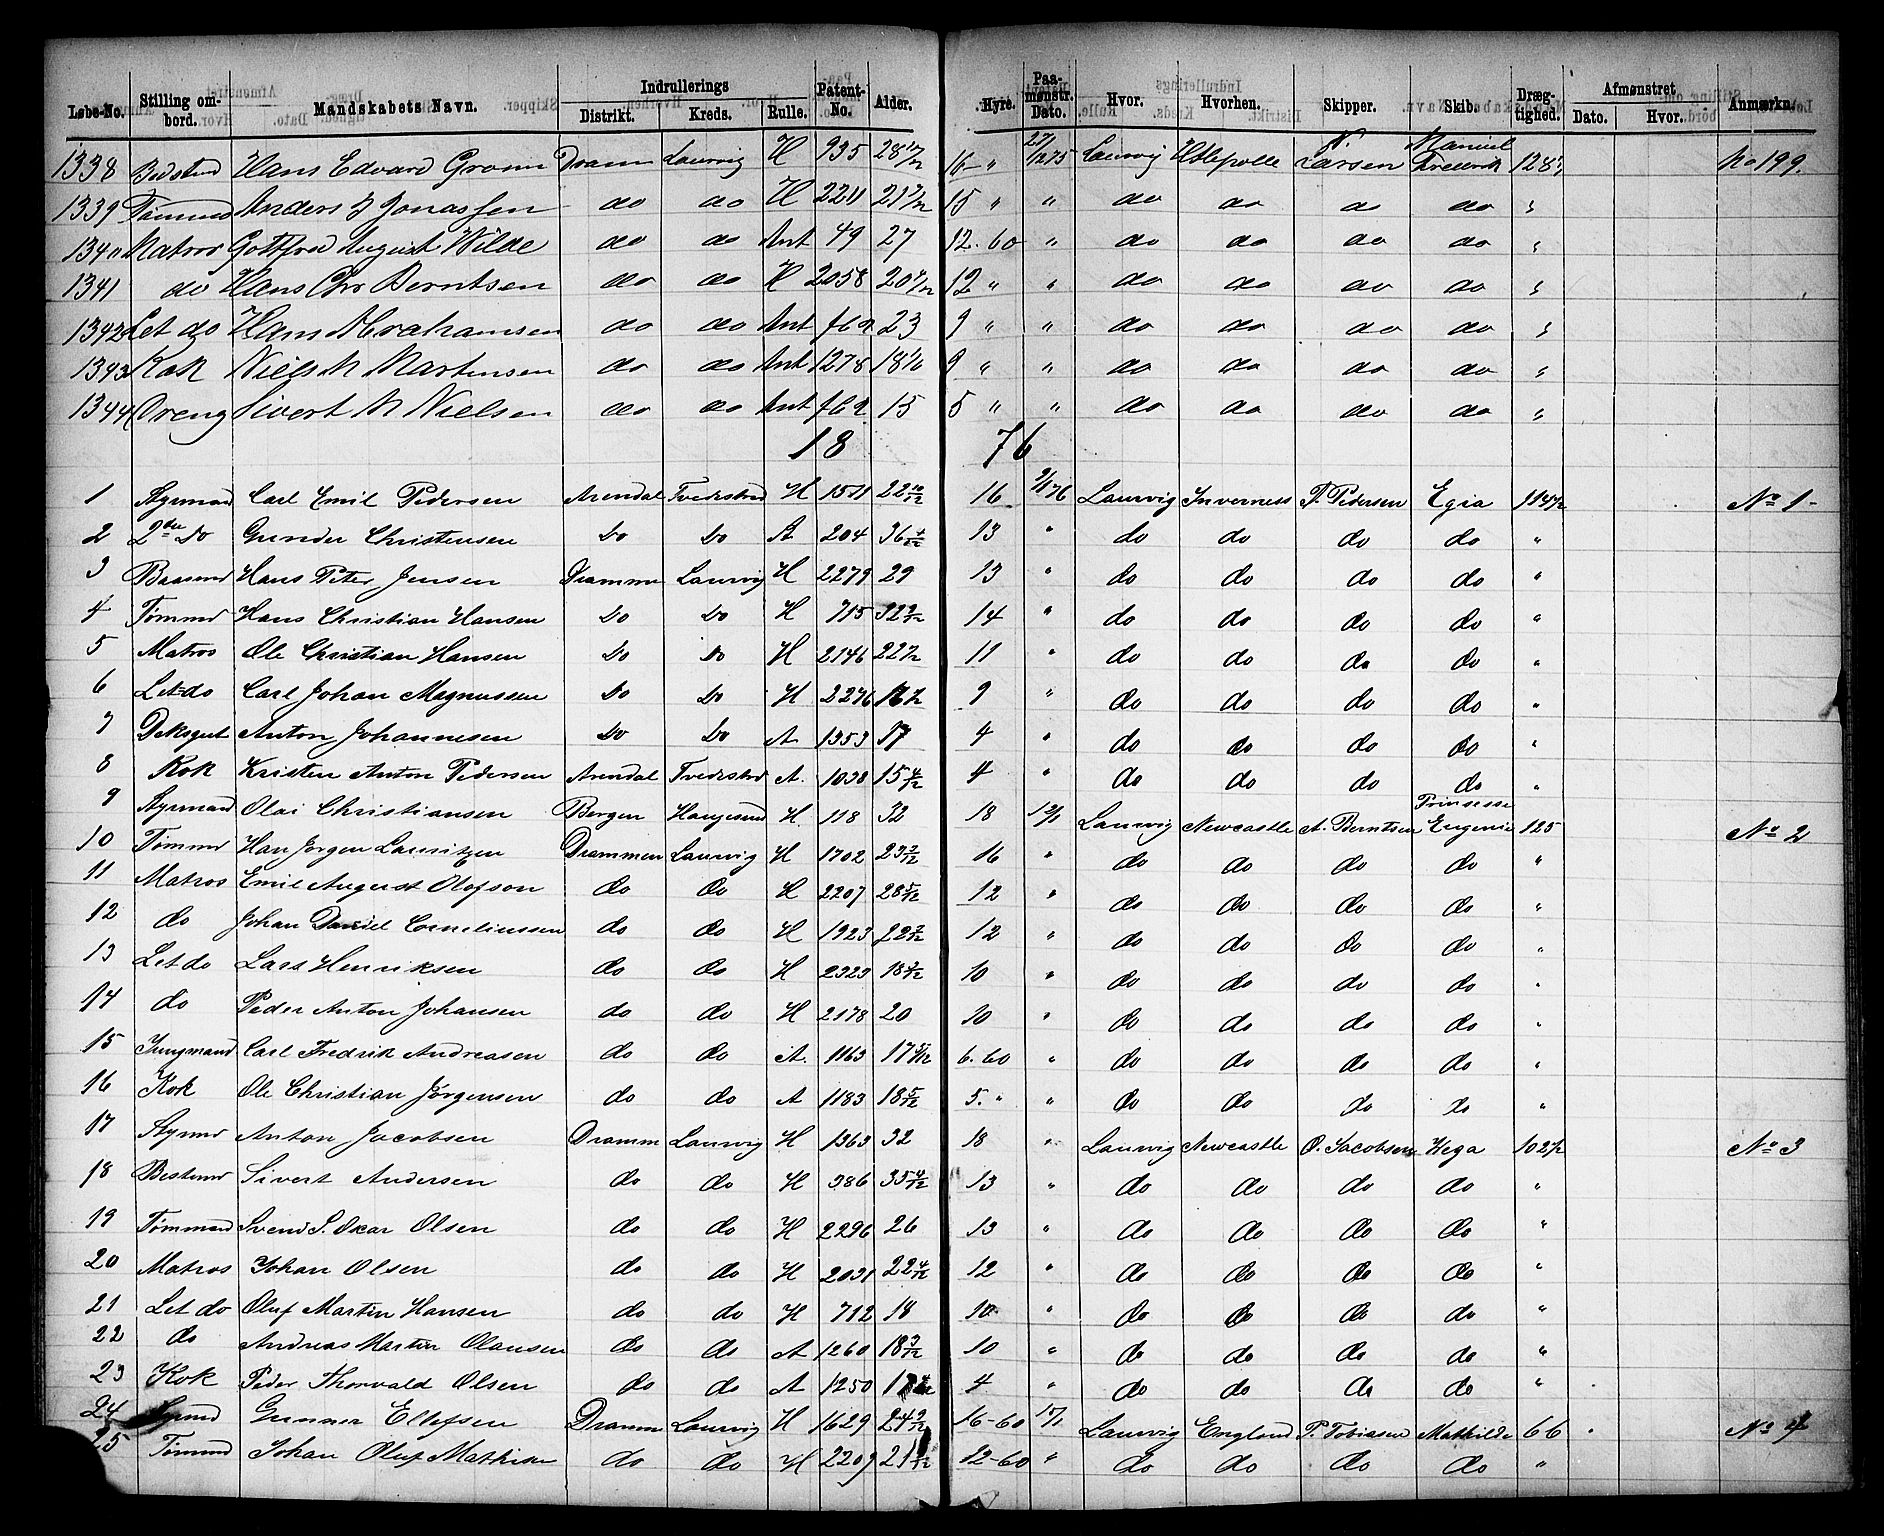 Løbe-No. Stilling ombord. Mandskabets Navn. Indrullerings Distrikt. Kreds. Rulle. Patent-No. Alder. Hyre. Paamønstr. Dato. Hvor. Hvorhen. Skipper. Skib. Drægtighed. Afmønstret Dato. Hvor. Anmærkn.
1338 Hans Edvard Dramm Laurvig H 935 28 16 " 27/12 75 Laurvig Larsen Frederik 128 No 199.
1339 Tømmd Anders J Jonassen do do H 2211 21 15 " " do do do do "
1340 Matros Gottfred August Wilde do do Ant 49 27 12.60 " do do do do "
1341 do Hans Chr Berntsen do do H 2058 20 12 " " do do do do "
1342 Let do Hans Abrahamsen do do Ant 23 9 " " do do do do "
1343 Kok Niels M Martinsen do do Ant 1278 18 9 " " do do do do "
1344 Dreng Sivert M Nielsen do do Ant 15 5 " " do do do do "
18 76
1 Styrmand Carl Emil Pedersen Arendal Tvedestrd H 1511 22 10/12 16 9/1 76 Laurvig Inverness P. Pedersen Egia 114 1/2 No 1-
2 2den Do Gunder Christensen Do Do A 204 36 13 " do do do do "
3 Baasmd Hans Peter Jensen Dramme Laurvig H 2279 29 13 " do do do do "
4 Tømmd Hans Christian Hansen Do Do H 715 32 14 " do do do do "
5 Matros Ole Christian Hansen Do Do H 2146 22 11 " do do do do "
6 Let do Carl Johan Magnussen Do Do H 2276 9 " do do do do "
7 Deksgut Anton Johannesen Do Do A 1353 17 4 " do do do do "
8 Kok Kristen Anton Pedersen Arendal Tvedestrd A. 1038 15 4/12 4 " do do do do "
9 Styrmand Olai Christiansen Bergen Haugesund H. 118 32 18 12/1 Laurvig Newcastle A. Berntsen Prinsesse Eugenie 125 No 2
10 Tømmd Han Jørgen Lauritzen Drammen Laurvig H 1702 23 16 " do do do do "
11 Matros Emil August Olofson do do H 2207 28 5/12 12 " do do do do "
12 do Johan Daniel Corneliussen do do H 1923 22 12 " do do do do "
13 Let do Lars Henriksen do do H 2323 18 10 " do do do do "
14 do Peder Anton Johansen do do H 2178 20 10 " do do do do "
15 Jungmand Carl Fredrik Andreasen do do A. 1163 17 6.60 " do do do do "
16 Kok Ole Christian Jørgensen do do A 1183 18 5/12 5. " " do do do do "
17 Styrmd Anton Jacobsen Dramm Laurvig H 1363 32 18 " Laurvig Newcastle O. Jacobsen Wega 102 1/2 No 3
18 Bestmd Sivert Andersen do do H 386 35 4/12 13 " do do do do "
19 Tømmd Svend S. Oscar Olsen do do H 2296 26 13 " do do do do "
20 Matros Johan Olsen do do H 2031 22 4/12 12 " do do do do "
21 Let do Oluf Martin Hansen do do H 712 18 10 " do do do do "
22 do Andreas Martin Olausen do do A 1260 18 3/12 10 " do do do do "
23 Kok Peder Thorvald Olsen do do A 1250 4 " do do do do "
24 Styrmd Gunner Ellefsen Dramm Laurvig H 1629 24 16-60 Laurvig England P. Tobiassen Mathilde 66 No 4
25 Tømmd Johan Oluf Mathisen do do H 2209 21 12-60 " do do do do "